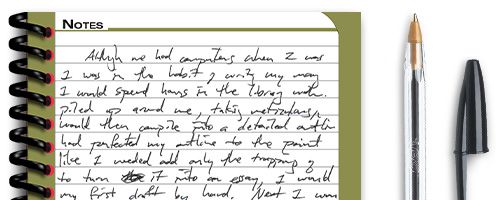 NOTES
Although we had computers when I was
I was in the habit of writing my many
I would spend hours in the library with
piled up around me, taking meticulous
would then compile into a detailed outline
had perfected my outline to the point
like I needed add only the trappings of
to turn it into an essay. I would
my first draft by hand. Next I would